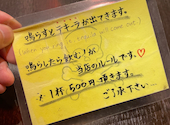 鳴らすとテキーラが出てきます。
鳴らしたら飲む!が
当店のルールです。♡
★1杯500円頂きます。
ご了承下さい